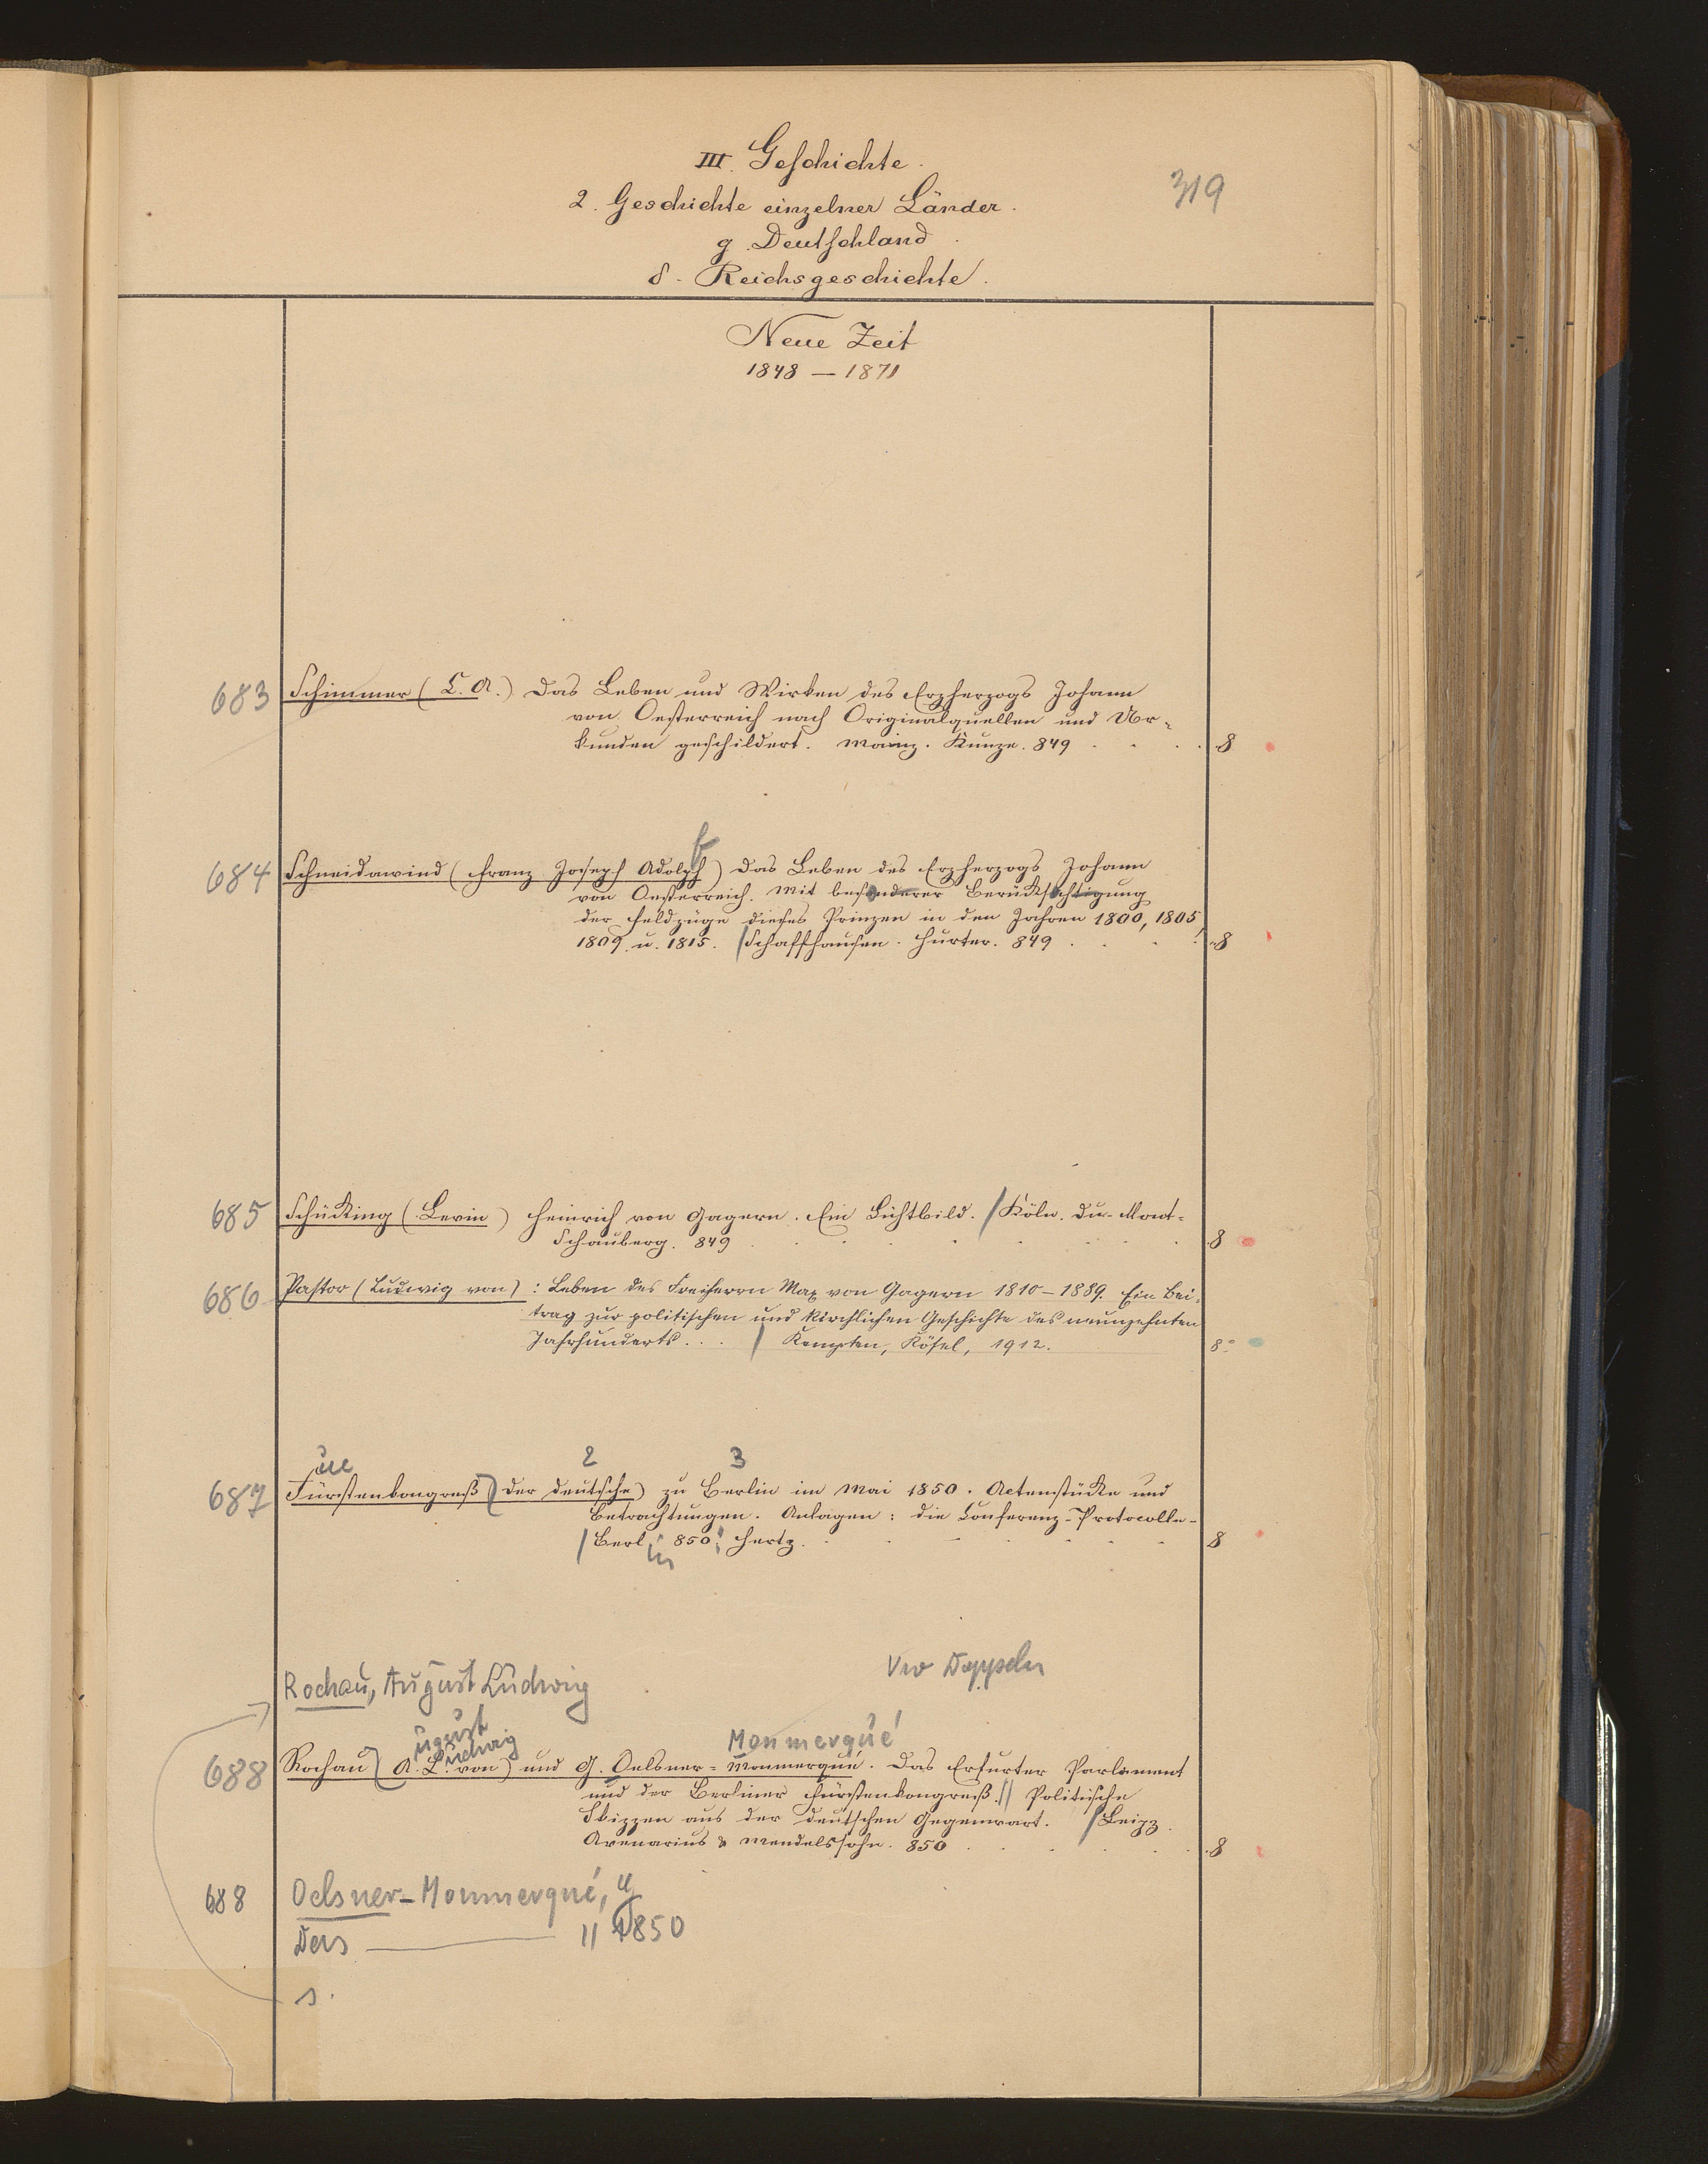 III. Geschichte.
319
2. Geschichte einzelner Länder.
g. Deutschland.
δ. Reichsgeschichte.
Neue Zeit
1848 — 1871
683 Schimmer (C. A.) Das Leben und Wirken des Erzherzogs Johann
von Oesterreich nach Originalquellen und Ur-
kunden geschildert. Mainz. Kunze. 849 . . . . 8
f
684 Schneidawind (Franz Joseph Adolph) Das Leben des Erzherzogs Johann
von Oesterreich. Mit besonderer Berücksichtigung
der Feldzüge dieses Prinzen in den Jahren 1800, 1805,
1809 u. 1815. / Schaffhausen. Hurter. 849 . . . . 8
685 Schücking (Levin) Heinrich von Gagern. Ein Lichtbild. / Köln. Du-Mont-
Schauberg. 849 . . . . . . . 8
686 Pastor (Ludwig von) : Leben des Freiherrn Max von Gagern 1810–1889. Ein Bei-
trag zur politischen und kirchlichen Geschichte des neunzehnten
Jahrhunderts. . . / Kempten, Kösel, 1912. 8°
üe 2 3
687 Fürstenkongreß (der deutsche) zu Berlin im Mai 1850. Actenstücke und
Betrachtungen. Anlagen: die Conferenz-Protocolle-
/ Berl. 850. Hertz. . . . . . . 8
in
Vw Doppeln
Rochau, August Ludwig
ugust
udwig Monmerqué
688 Rochau (A. L. von) und G. Oelsner-Monmerqué. Das Erfurter Parlament
und der Berliner Fürstenkongreß. // Politische
Skizzen aus der deutschen Gegenwart. / Leipz.
Avenarius & Mendelssohn. 850 . . . . . 8
688 Oelsner-Monmerqué, G
Ders — // 1850
s.